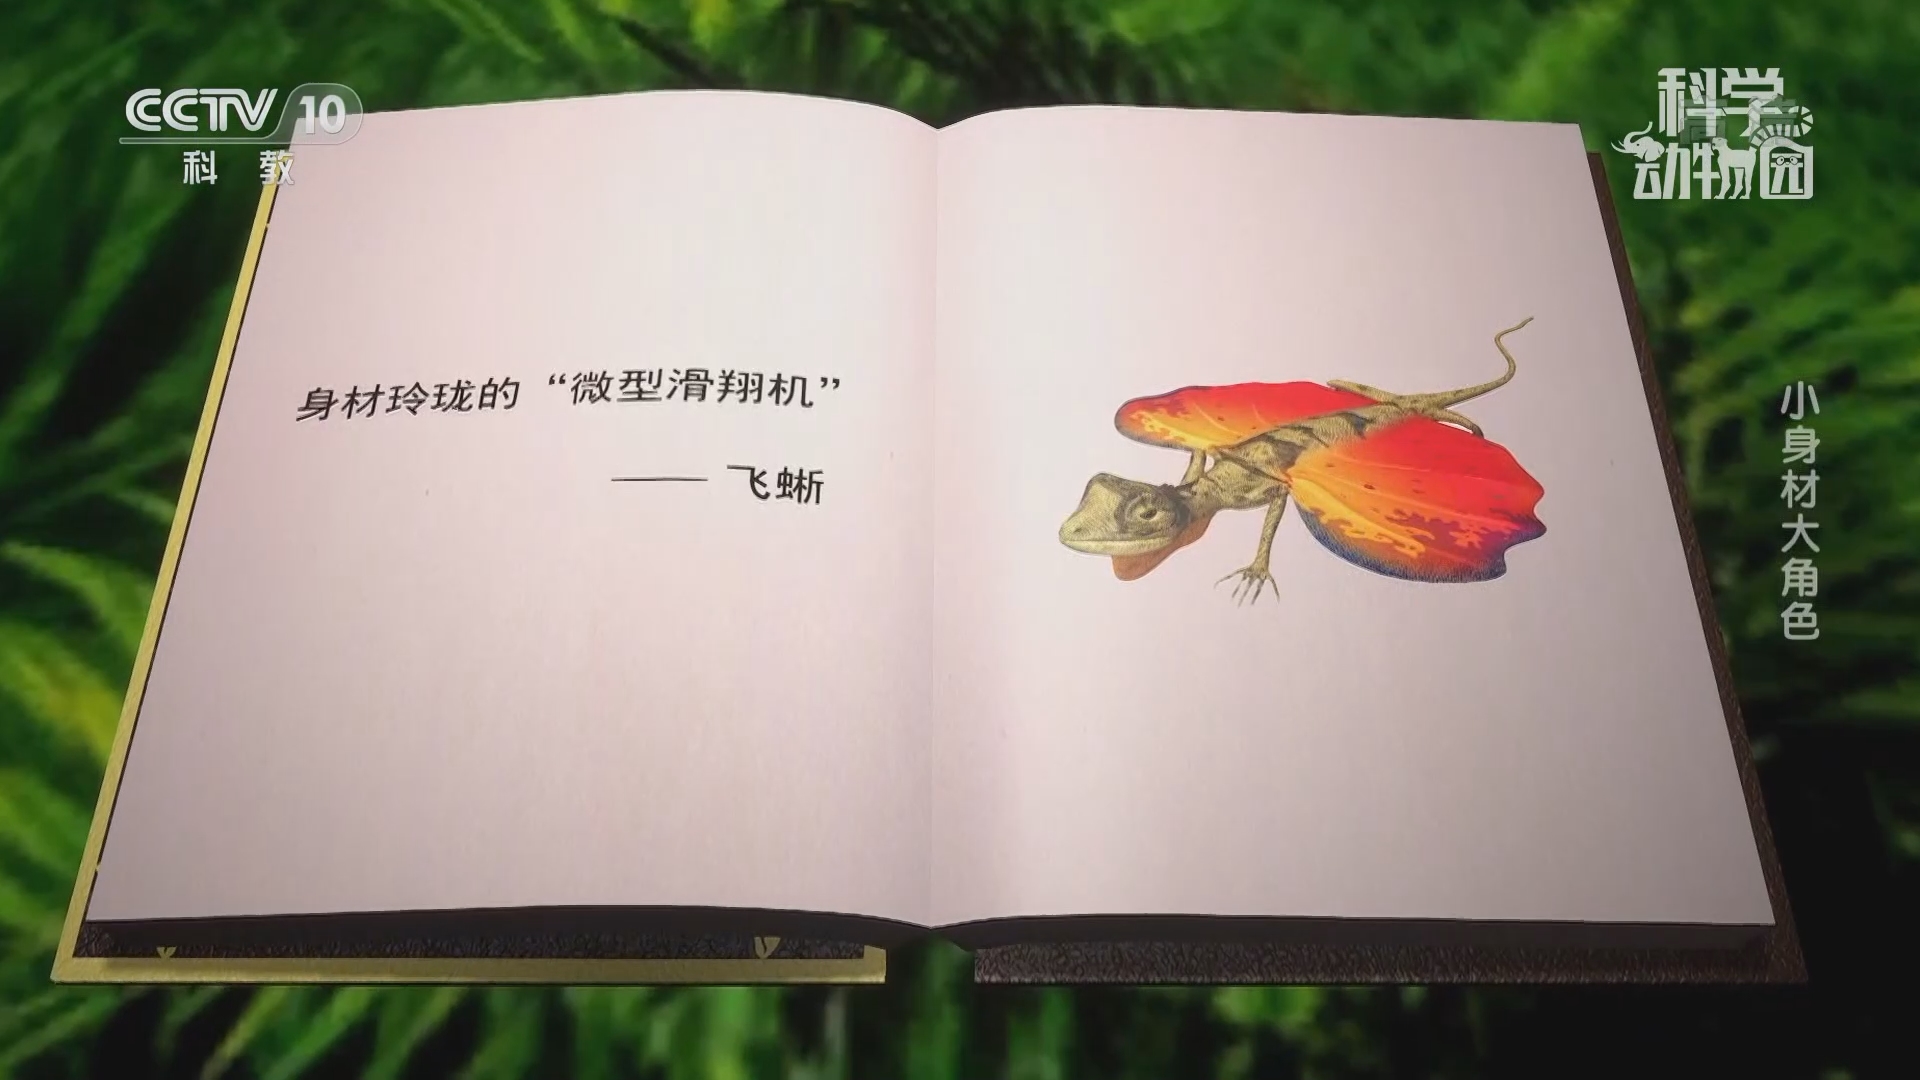 CCTV 10
科教
科学
动物园
身材玲珑的“微型滑翔机”
—— 飞蜥
小身材大角色